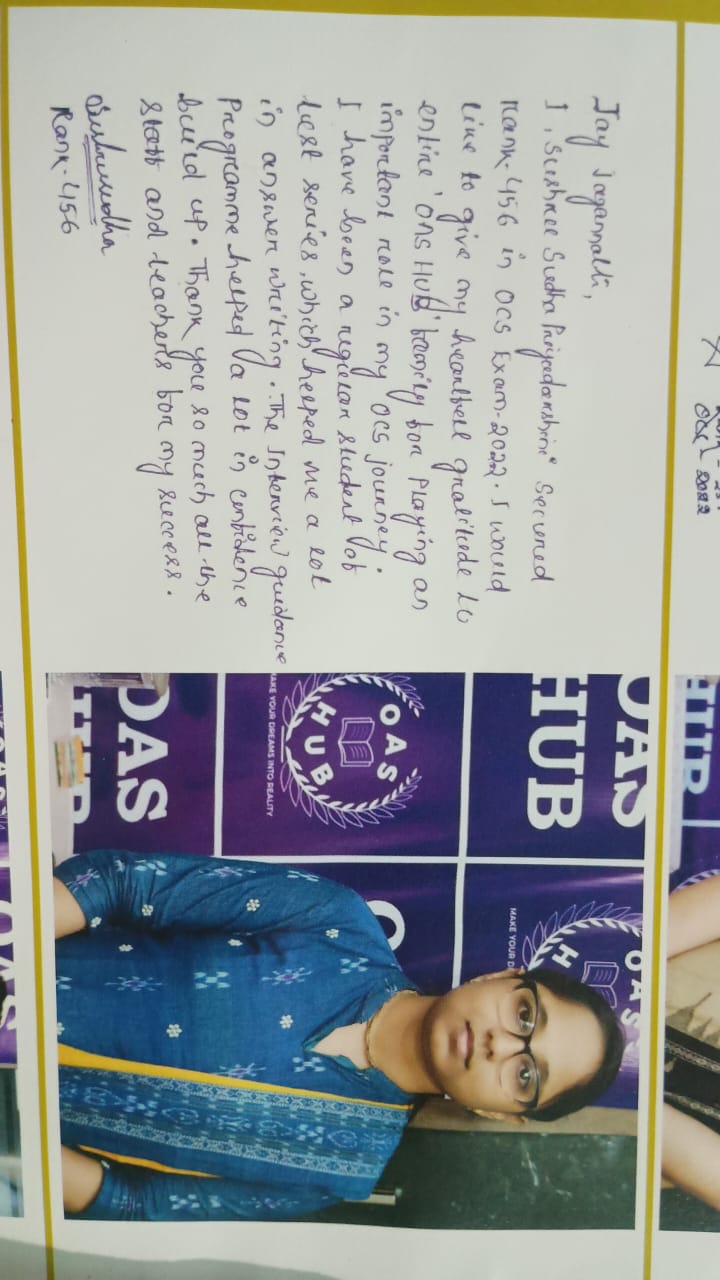 Jay Jagannath,
I, Sushree Sudha Priyadarshini Secured
Rank-456 in OCS Exam-2022. I would
like to give my heartfelt gratitude to
entire 'OAS HUB' family for Playing an
important role in my OCS journey.
I have been a regular student of
test series, which helped me a lot
in answer writing. The Interview guidance
Programme helped a lot in confidence
build up. Thank you so much all the
staff and teachers for my success.
Rank-456
OAS
HUB
OAS
HUB
MAKE YOUR DREAMS INTO REALITY
OAS
HUB
MAKE YOUR D
OAS
H
O
2022
HUB